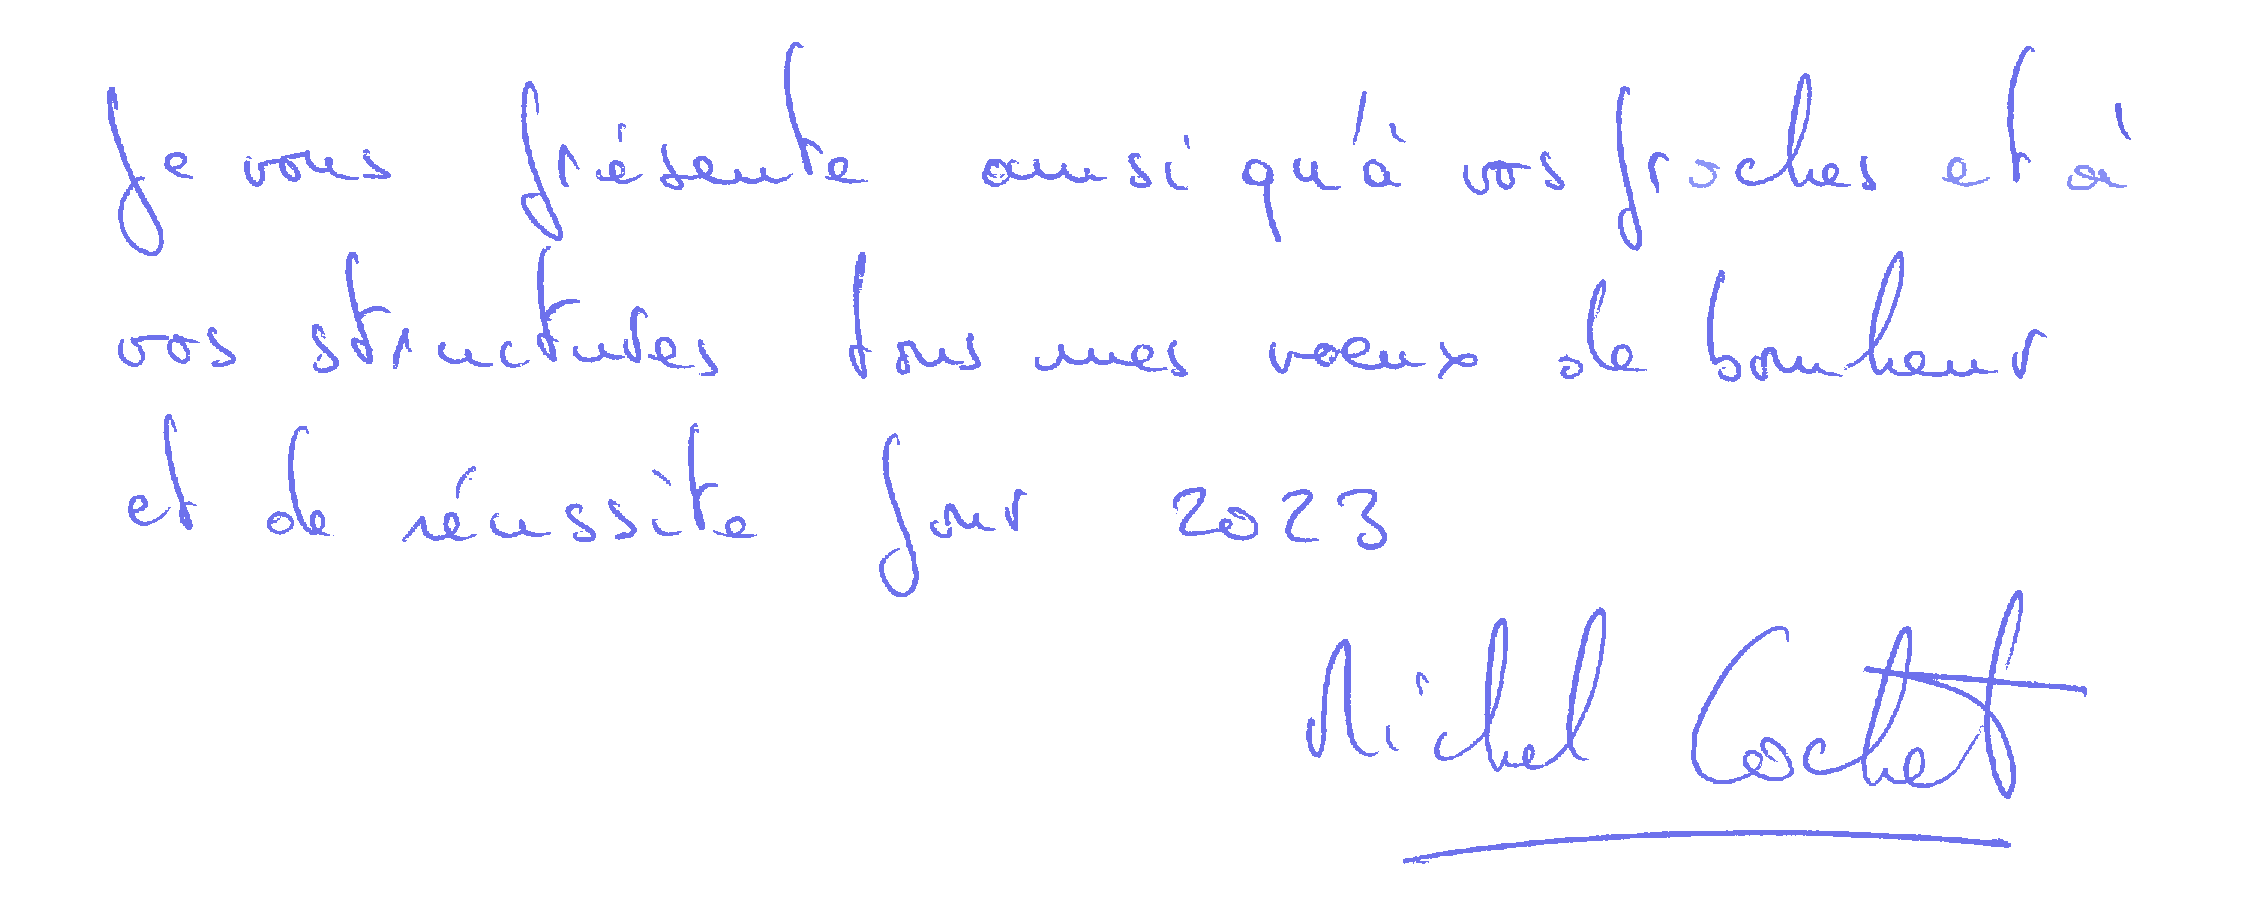 Je vous présente ainsi qu'à vos proches et à
vos structures tous mes voeux de bonheur
et de réussite pour 2023
Michel Cochet